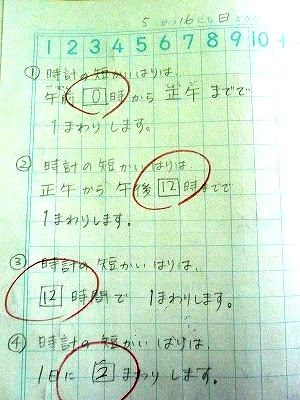 5 がつ16にち日よう日
1 2 3 4 5 6 7 8 9 10
① 時計の短かいはりは
午前 0 時から 正午 までで
1まわりします。
② 時計の短かいはりは
正午から 午後 12 時までで
1まわりします。
③ 時計の短かいはりは、
12 時間で 1まわりします。
④ 時計の短かい はりは
1日に 2 まわり します。